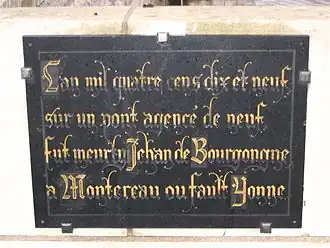 L'an mil quatre cens dix et neuf
sur un pont agencé de neuf
fut meurtri Jehan de Bourgongne
a Montereau ou fault Yonne